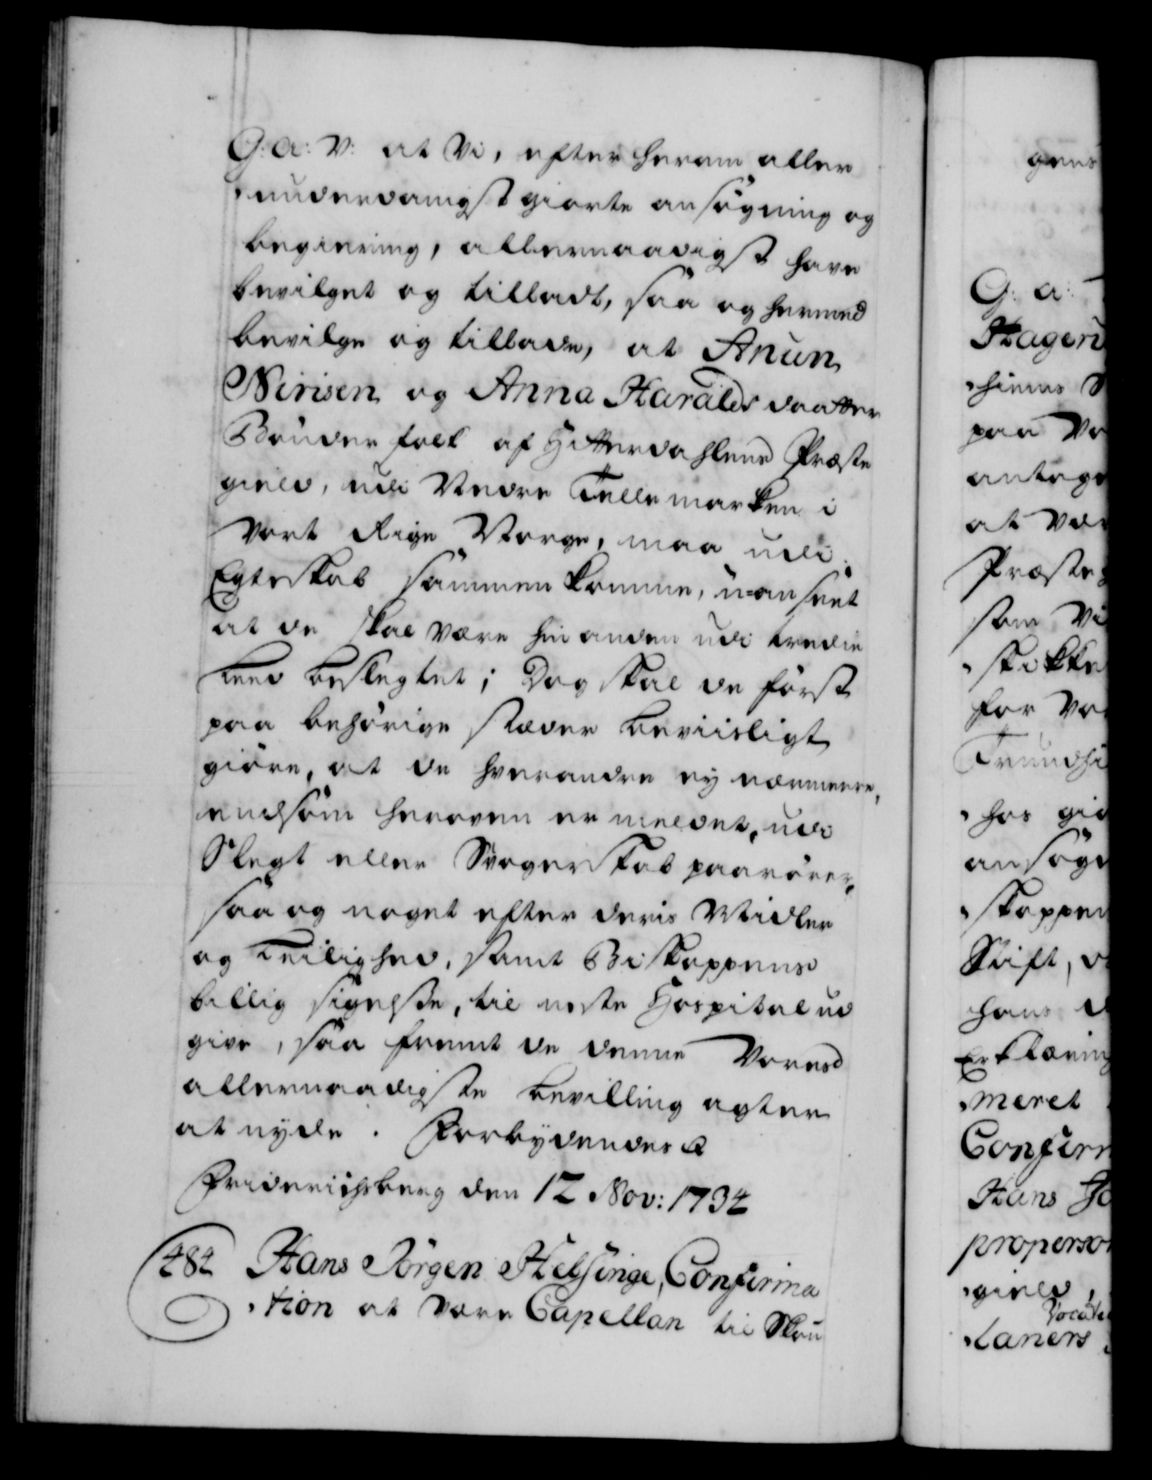 G: a: V: at Vi, efter herom aller
underdanigst giorte ansögning og
begiering, allernaadigst have
bevilget og tilladt, saa og hermed
bevilge og tillade, at Anun
Nirisen og Anna Haralds daatter
Bönder folk af Hitterdahlens Præste
gield, udi Nedre Tellemarken i
Vort Rige Norge, maa udi
Egteskab sammen komme, u-anseet
at de skal være hin anden udi tredie
Leed beslegtet; Dog skal de först
paa behörige stæder beviisligt
giöre, at de hverandre ej nærmere,
end som heroven er meldet, udi
Slegt eller Svogerskab paarörer,
saa og noget efter deris Midler
og Leilighed, samt Biskoppens
billig sigelse, til neste Hospital ud
give, saa fremt de denne Vores
allernaadigste bevilling agter
at nyde. Forbydendes &
Friderichsberg den 12 Nov: 1734
484 Hans Jörgen Helsinge, Confirma
tion at være Capellan til Skou
gens
G: a:
Hageru
hiems
paa Vo
antage
at vær
Præste
som Vi
skikke
for Vor
Trundhi
hos gio
ansöge
skoppen
Stift,
hans
Erklæring
meret
Confirm
Hans Jö
properso
gield,
Vocate
laners